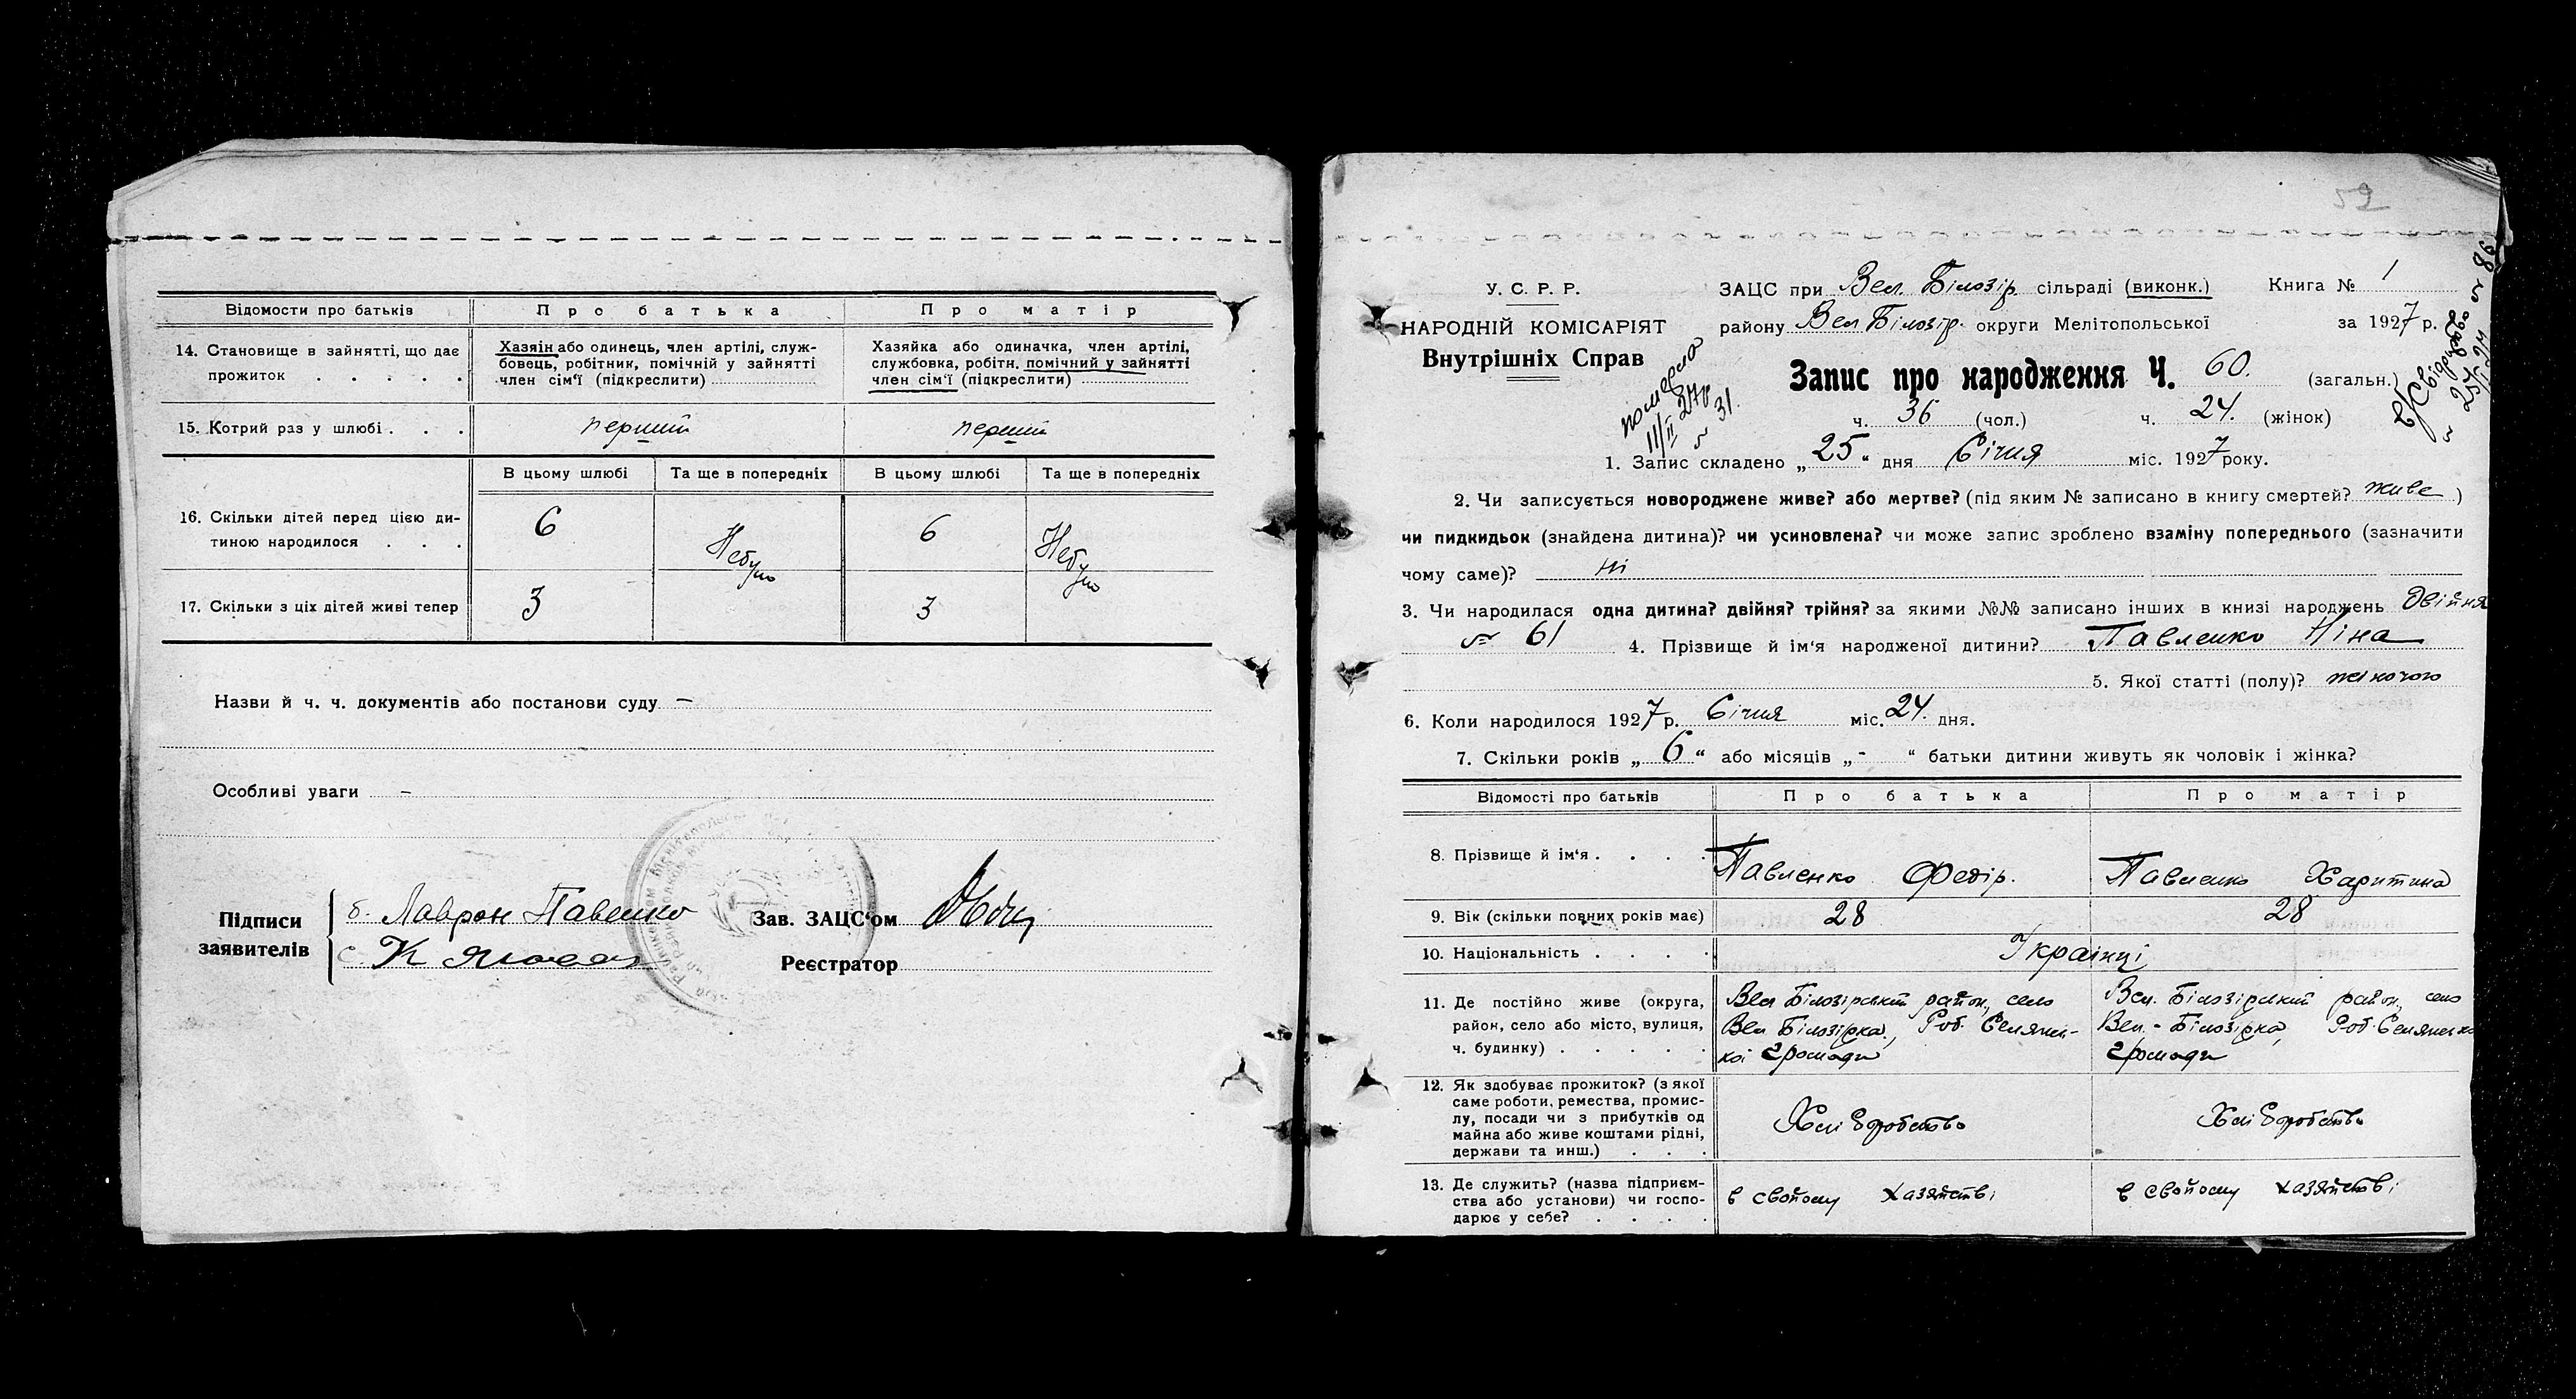 Відомости про батьків
Про батька
Про матір
14. Становище в зайнятті, що дає прожиток . . . . .
Хазяін або одинець, член артілі, служ-
бовець, робітник, помічній у зайнятті
член сім'ї (підкреслити)
Хазяйка або одиначка, член артілі,
службовка, робітн. помічний у зайнятті
член сім'ї (підкреслити)
15. Котрий раз у шлюбі . . .
перший
перший
В цьому шлюбі
Та ще в попередніх
В цьому шлюбі
Та ще в попередніх
16. Скільки дітей перед цією ди-
тиною народилося . . .
6
Небуло
6
Небуло
17. Скільки з ціх дітей живі тепер
3
3
Назви й ч. ч. документів або постанови суду —
Особливі уваги —
Підписи
заявителів
б.
с. К
Зав. ЗАЦС'ом
Реєстратор
59
У. С. Р. Р.
НАРОДНІЙ КОМІСАРІЯТ
Внутрішніх Справ
померла
11/II 27 р
№ 31.
ЗАЦС при Вел. Білозір. сільраді (виконк.)
Книга № 1
району Вел Білозір. округи Мелітопольської
за 1927 р.
Запис про народження Ч. 60. (загальн.)
ч. 36 (чол.)
ч. 24. (жінок)
№ 86
1. Запис складено „25“ дня Січня міс. 1927 року.
2. Чи записується новороджене живе? або мертве? (під яким № записано в книгу смертей? живе )
чи пидкидьок (знайдена дитина)? чи усиновлена? чи може запис зроблено взаміну попереднього (зазначити
чому саме)? ні
3. Чи народилася одна дитина? двійня? трійня? за якими №№ записано інших в книзі народжень двійня
№ 61 4. Прізвище й ім'я народженої дитини? Павленко Ніна
5. Якої статті (полу)? жіночою
6. Коли народилося 1927 р. Січня міс. 24. дня.
7. Скільки років „6“ або місяців „-“ батьки дитини живуть як чоловік і жінка?
Відомості про батьків
Про батька
Про матір
8. Прізвище й ім'я . . . .
Павленко Федір.
Павленко Харитина
9. Вік (скільки повних років має)
28
28
10. Національність . . . .
Українці
11. Де постійно живе (округа,
район, село або місто, вулиця,
ч. будинку) . . . . .
Вел Білозірський район, село
Вел Білозірка, Роб. Селянсь-
кої громади
Вел. Білозірський район, село
Вел.-Білозірка, Роб. Селянської
громади
12. Як здобуває прожиток? (з якої
саме роботи, ремества, промис-
лу, посади чи з прибутків од
майна або живе коштами рідні,
держави та инш.) . . .
Хліборобство
Хліборобство
13. Де служить? (назва підприєм-
ства або установи) чи госпо-
дарює у себе? . . . .
в свойому хазяйстві
в свойому хазяйстві